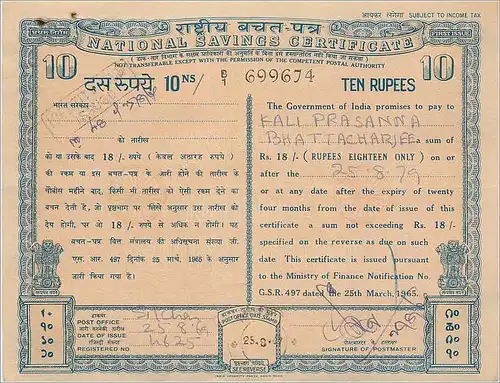 आयकर लगेगा SUBJECT TO INCOME TAX
राष्ट्रीय बचत-पत्र
प्रथम निर्गम
NATIONAL SAVINGS CERTIFICATE
FIRST ISSUE
NOT TRANSFERABLE EXCEPT WITH THE PERMISSION OF THE COMPETENT POSTAL AUTHORITY
10
दस रूपये 10 NS/ B/1 699674 TEN RUPEES
10
भारत सरकार
को तारीख
को या उसके बाद 18/- रुपये ( केवल अठारह रुपये )
की रकम या इस बचत-पत्र के जारी होने की तारीख के
चौबीस महीने बाद, किसी भी तारीख को ऐसी रकम देने का
वचन देती है, जो पृष्ठभाग पर लिखे अनुसार इस तारीख को
देय होगी, पर जो 18/- रुपये से अधिक न होगी। यह
बचत-पत्र वित्त मंत्रालय की अधिसूचना संख्या जी.
एस. आर. 497 दिनांक 25 मार्च, 1965 के अनुसार
जारी किया गया है।
The Government of India promises to pay to
KALI PRASANNA
BHATTACHARJEE a sum of
Rs. 18/- (RUPEES EIGHTEEN ONLY) on or
after the 25.8.79
or at any date after the expiry of twenty
four months from the date of issue of this
certificate a sum not exceeding Rs. 18/-
specified on the reverse as due on such
date. This certificate is issued pursuant
to the Ministry of Finance Notification No.
G.S.R. 497 dated the 25th March, 1965.
डाकघर
POST OFFICE
जारी करनेकी तारीख
DATE OF ISSUE 25.8.69
रजिस्ट्री संख्या
REGISTERED NO. 4625
25.8
SEE REVERSE
पोस्टमास्टर के हस्ताक्षर
SIGNATURE OF POSTMASTER